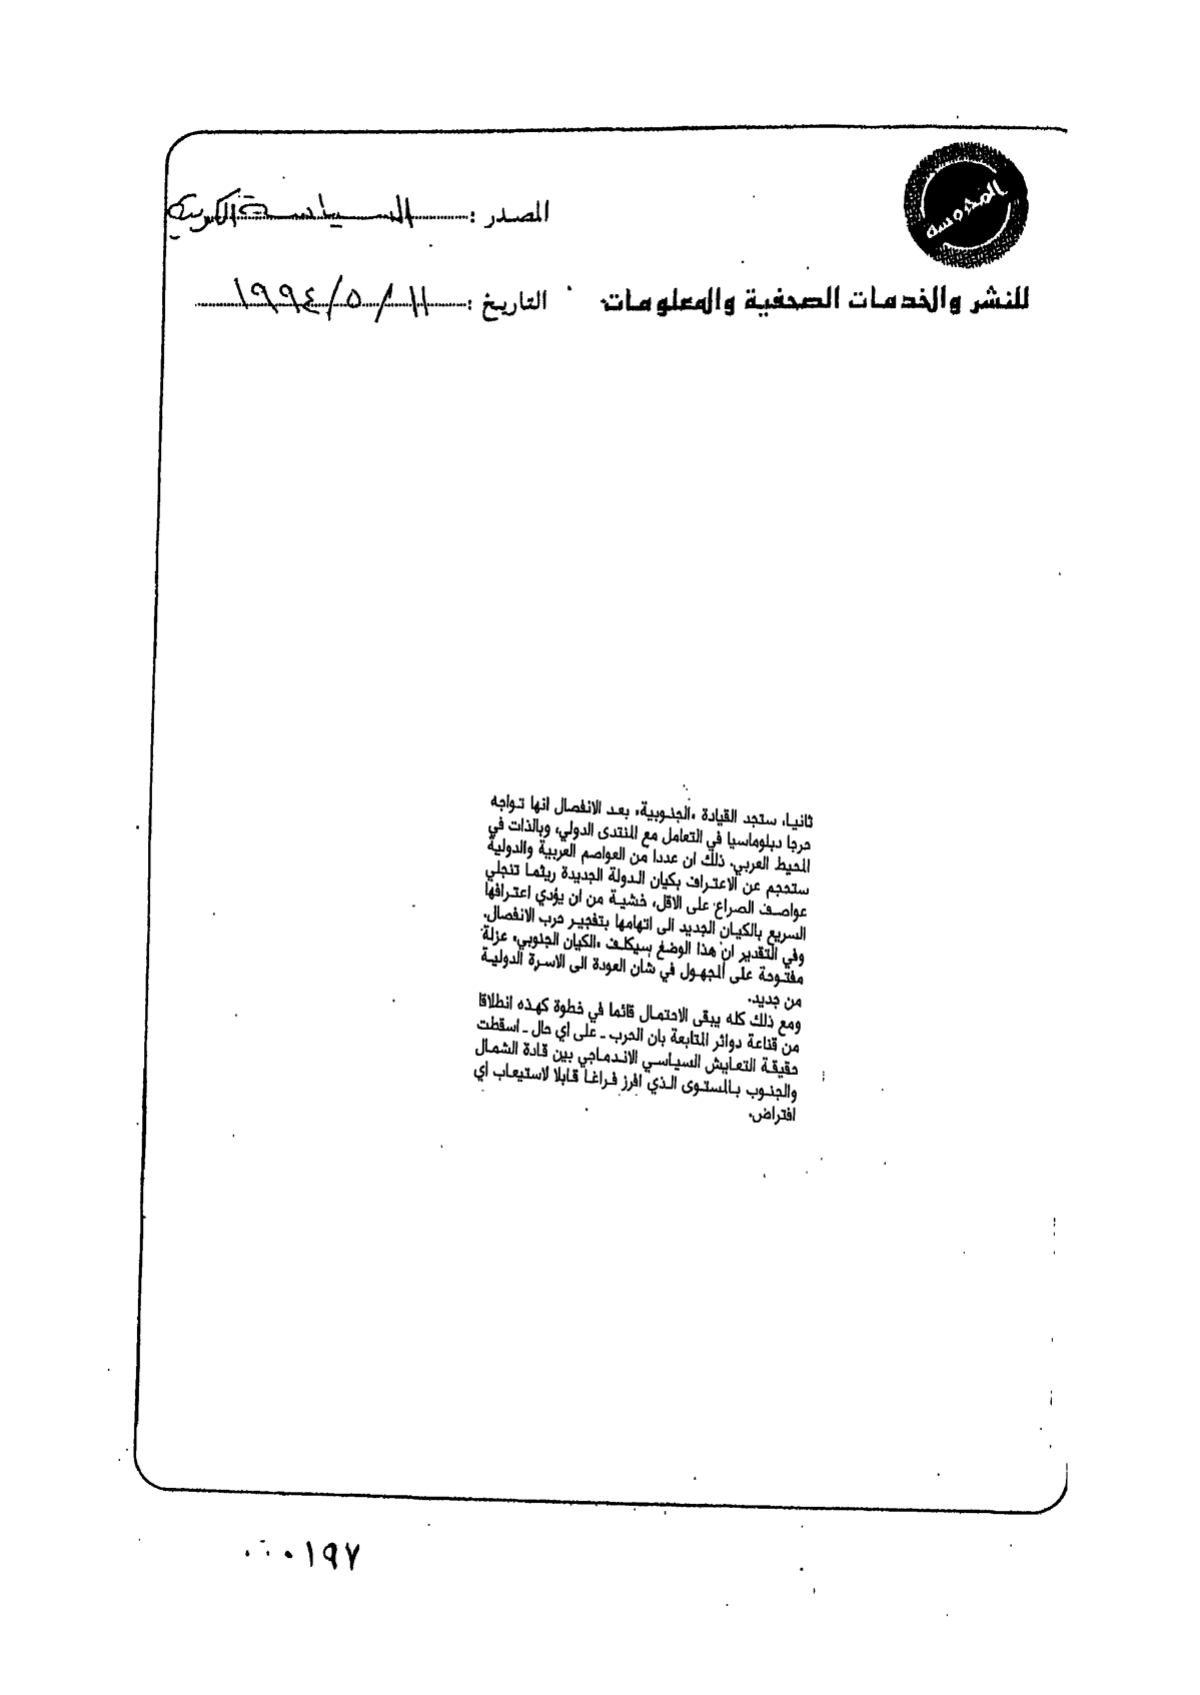 المدوسة
المصدر : السياسة الكويتية
للنشر والخدمات الصحفية والمعلومات
التاريخ : ١١ / ٥ / ١٩٩٤
ثانيا، ستجد القيادة «الجنوبية» بعد الانفصال انها تواجه
حرجا دبلوماسيا في التعامل مع المنتدى الدولي، وبالذات في
المحيط العربي. ذلك ان عددا من العواصم العربية والدولية
ستحجم عن الاعتراف بكيان الدولة الجديدة ريثما تنجلي
عواصف الصراع على الاقل، خشية من ان يؤدي اعترافها
السريع بالكيان الجديد الى اتهامها بتفجير حرب الانفصال.
وفي التقدير ان هذا الوضع سيكلف «الكيان الجنوبي» عزلة
مفتوحة على المجهول في شان العودة الى الاسرة الدولية
من جديد.
ومع ذلك كله يبقى الاحتمال قائما في خطوة كهذه انطلاقا
من قناعة دوائر المتابعة بان الحرب ـ على اي حال ـ اسقطت
حقيقة التعايش السياسي الاندماجي بين قادة الشمال
والجنوب بالمستوى الذي افرز فراغا قابلا لاستيعاب اي
افتراض.
٠٠٠١٩٧